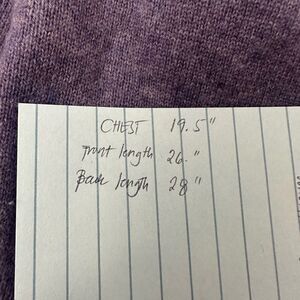 CHEST 19.5"
Front length 26."
Back length 28"